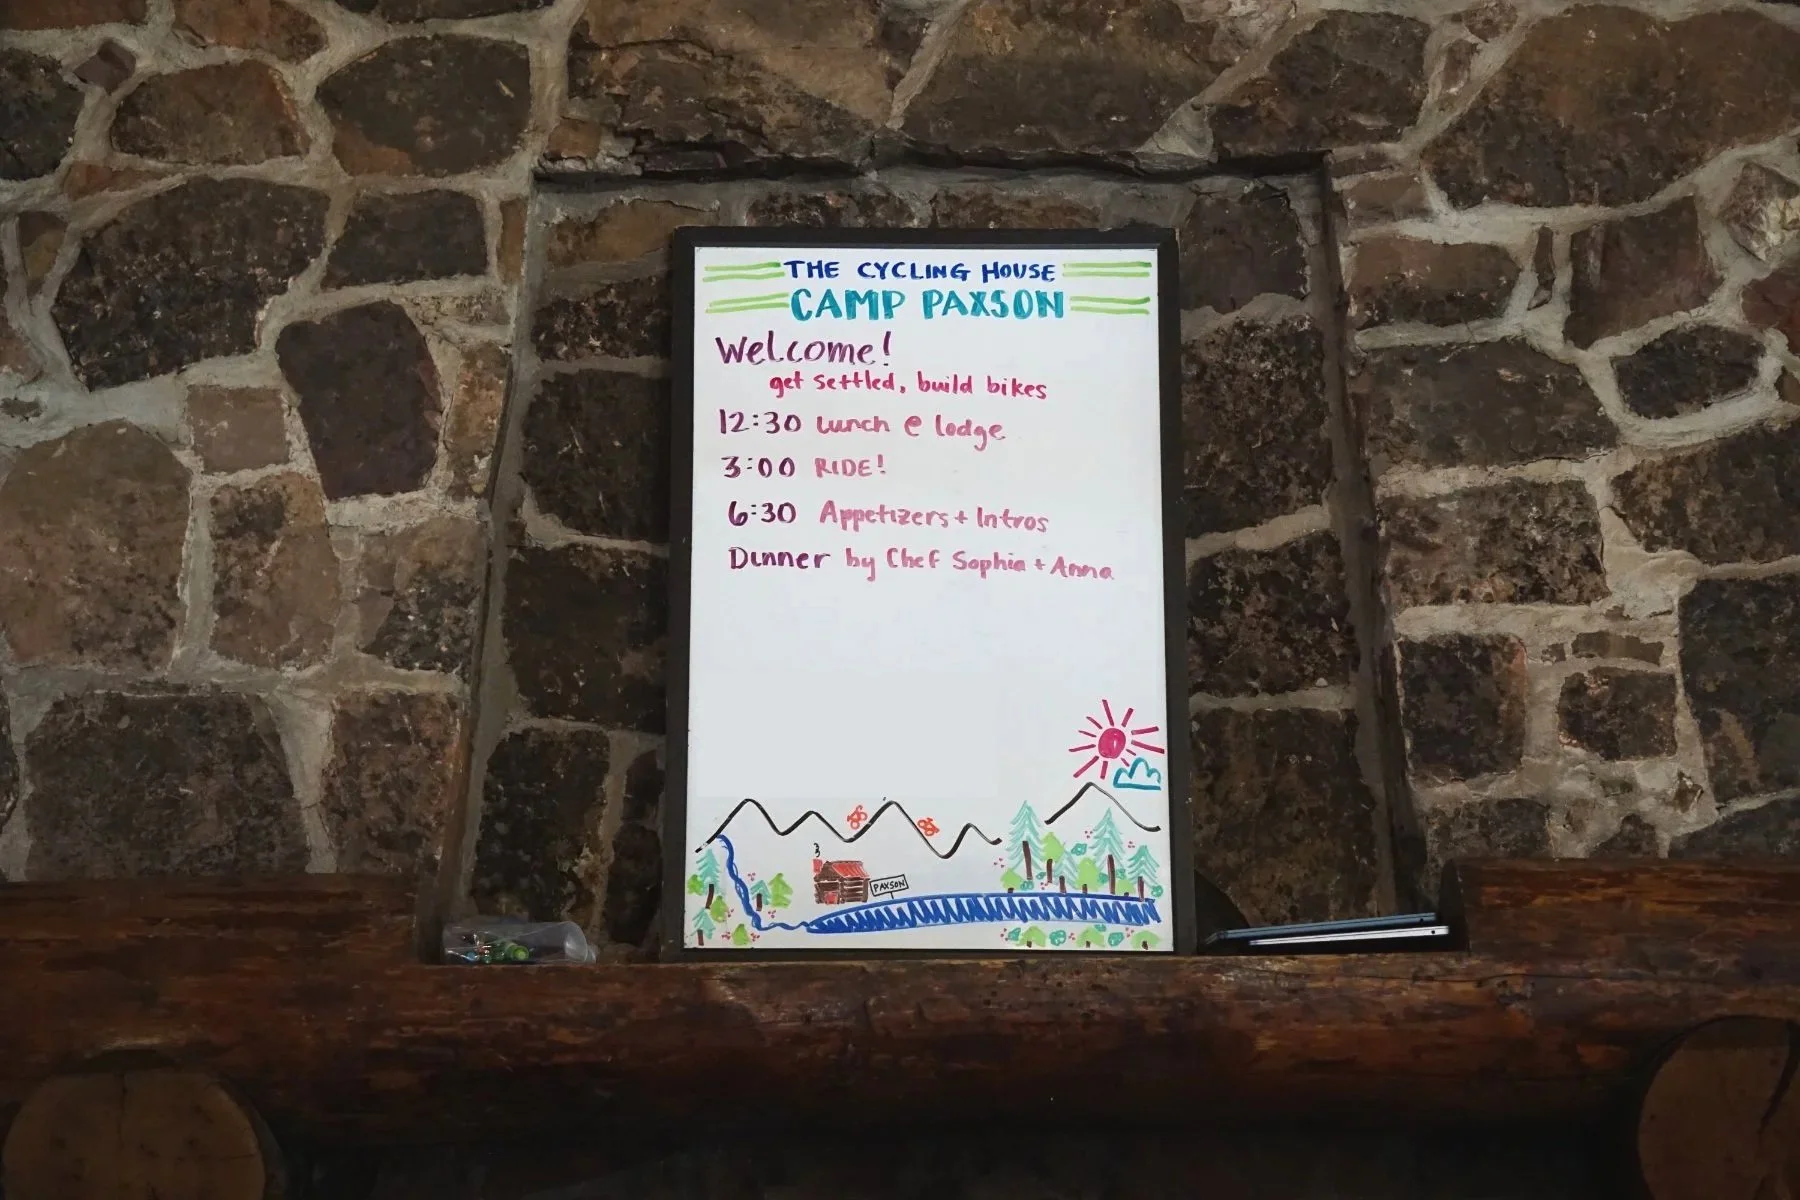 THE CYCLING HOUSE
CAMP PAXSON
Welcome!
get settled, build bikes
12:30 Lunch @ lodge
3:00 RIDE!
6:30 Appetizers + Intros
Dinner by Chef Sophia + Anna
PAXSON